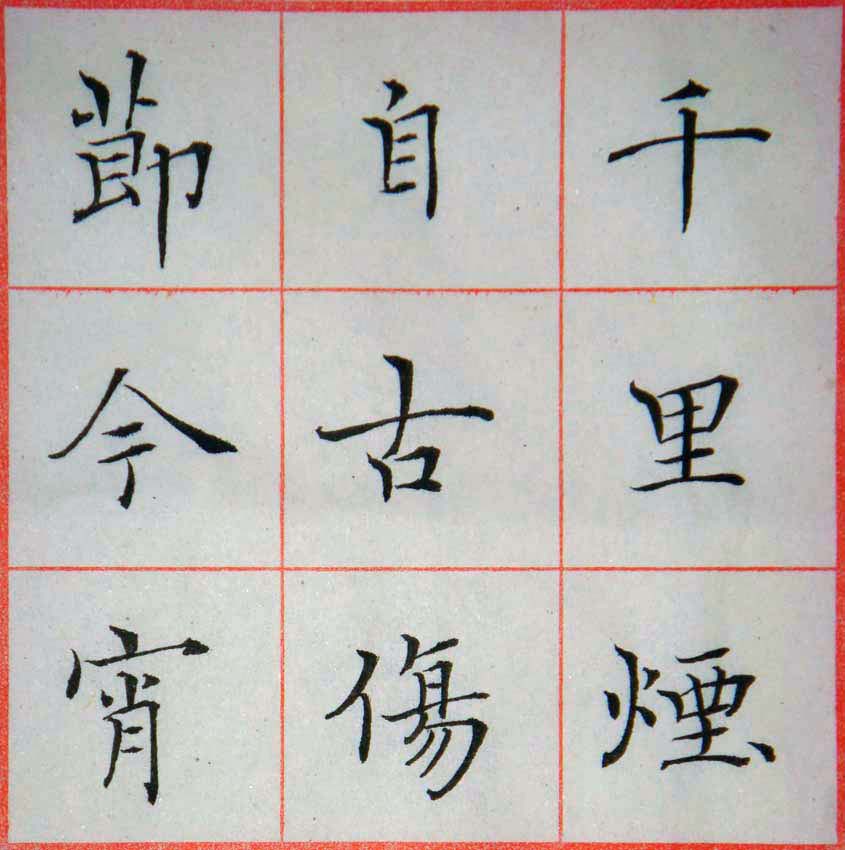 千里煙
自古傷
節今宵